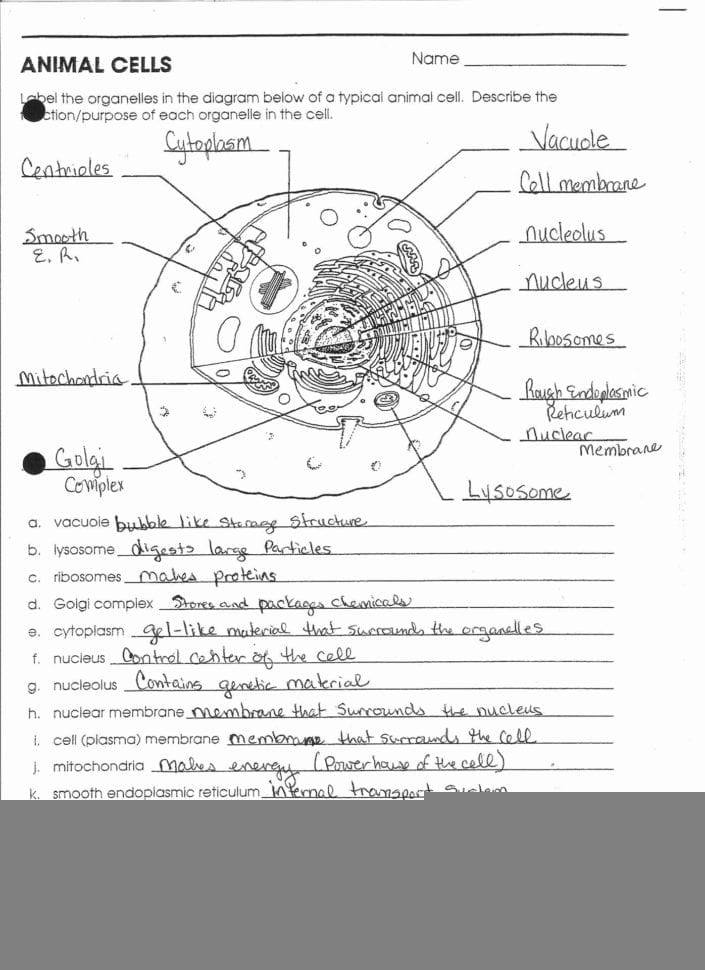 ANIMAL CELLS
Name
Label the organelles in the diagram below of a typical animal cell. Describe the
ction/purpose of each organelle in the cell.
Cytoplasm
Vacuole
Centrioles
Cell membrane
Smooth
E. R.
nucleolus
nucleus
Ribosomes
Mitochondria
Rough Endoplasmic
Reticulum
nuclear
Membrane
Golgi
Complex
Lysosome
a. vacuole bubble like storage structure
b. lysosome digests large Particles
c. ribosomes makes proteins
d. Golgi complex Stores and packages chemicals
e. cytoplasm gel-like material that surrounds the organelles
f. nucleus Control center of the cell
g. nucleolus Contains genetic material
h. nuclear membrane membrane that surrounds the nucleus
i. cell (plasma) membrane membrane that surrounds the cell
j. mitochondria makes energy (Powerhouse of the cell)
k. smooth endoplasmic reticulum internal transport system